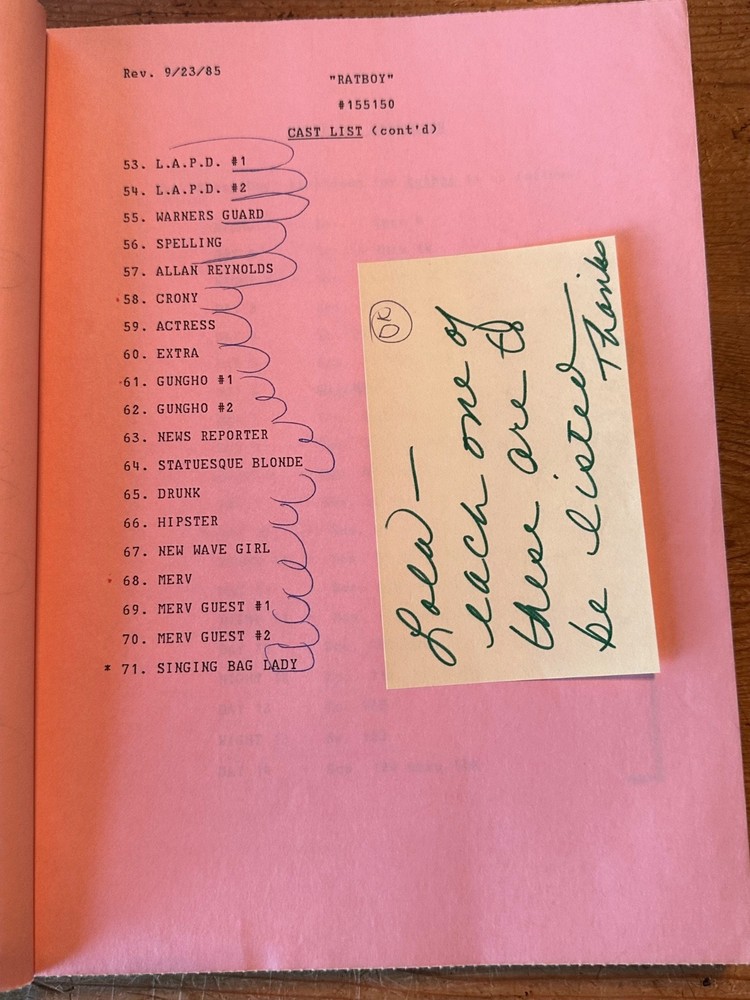 Rev. 9/23/85
"RATBOY"
#155150
CAST LIST (cont'd)
53. L.A.P.D. #1
54. L.A.P.D. #2
55. WARNERS GUARD
56. SPELLING
57. ALLAN REYNOLDS
58. CRONY
59. ACTRESS
60. EXTRA
61. GUNGHO #1
62. GUNGHO #2
63. NEWS REPORTER
64. STATUESQUE BLONDE
65. DRUNK
66. HIPSTER
67. NEW WAVE GIRL
68. MERV
69. MERV GUEST #1
70. MERV GUEST #2
* 71. SINGING BAG LADY
OK
Lola —
each one of
these are to
be listed —
Thanks